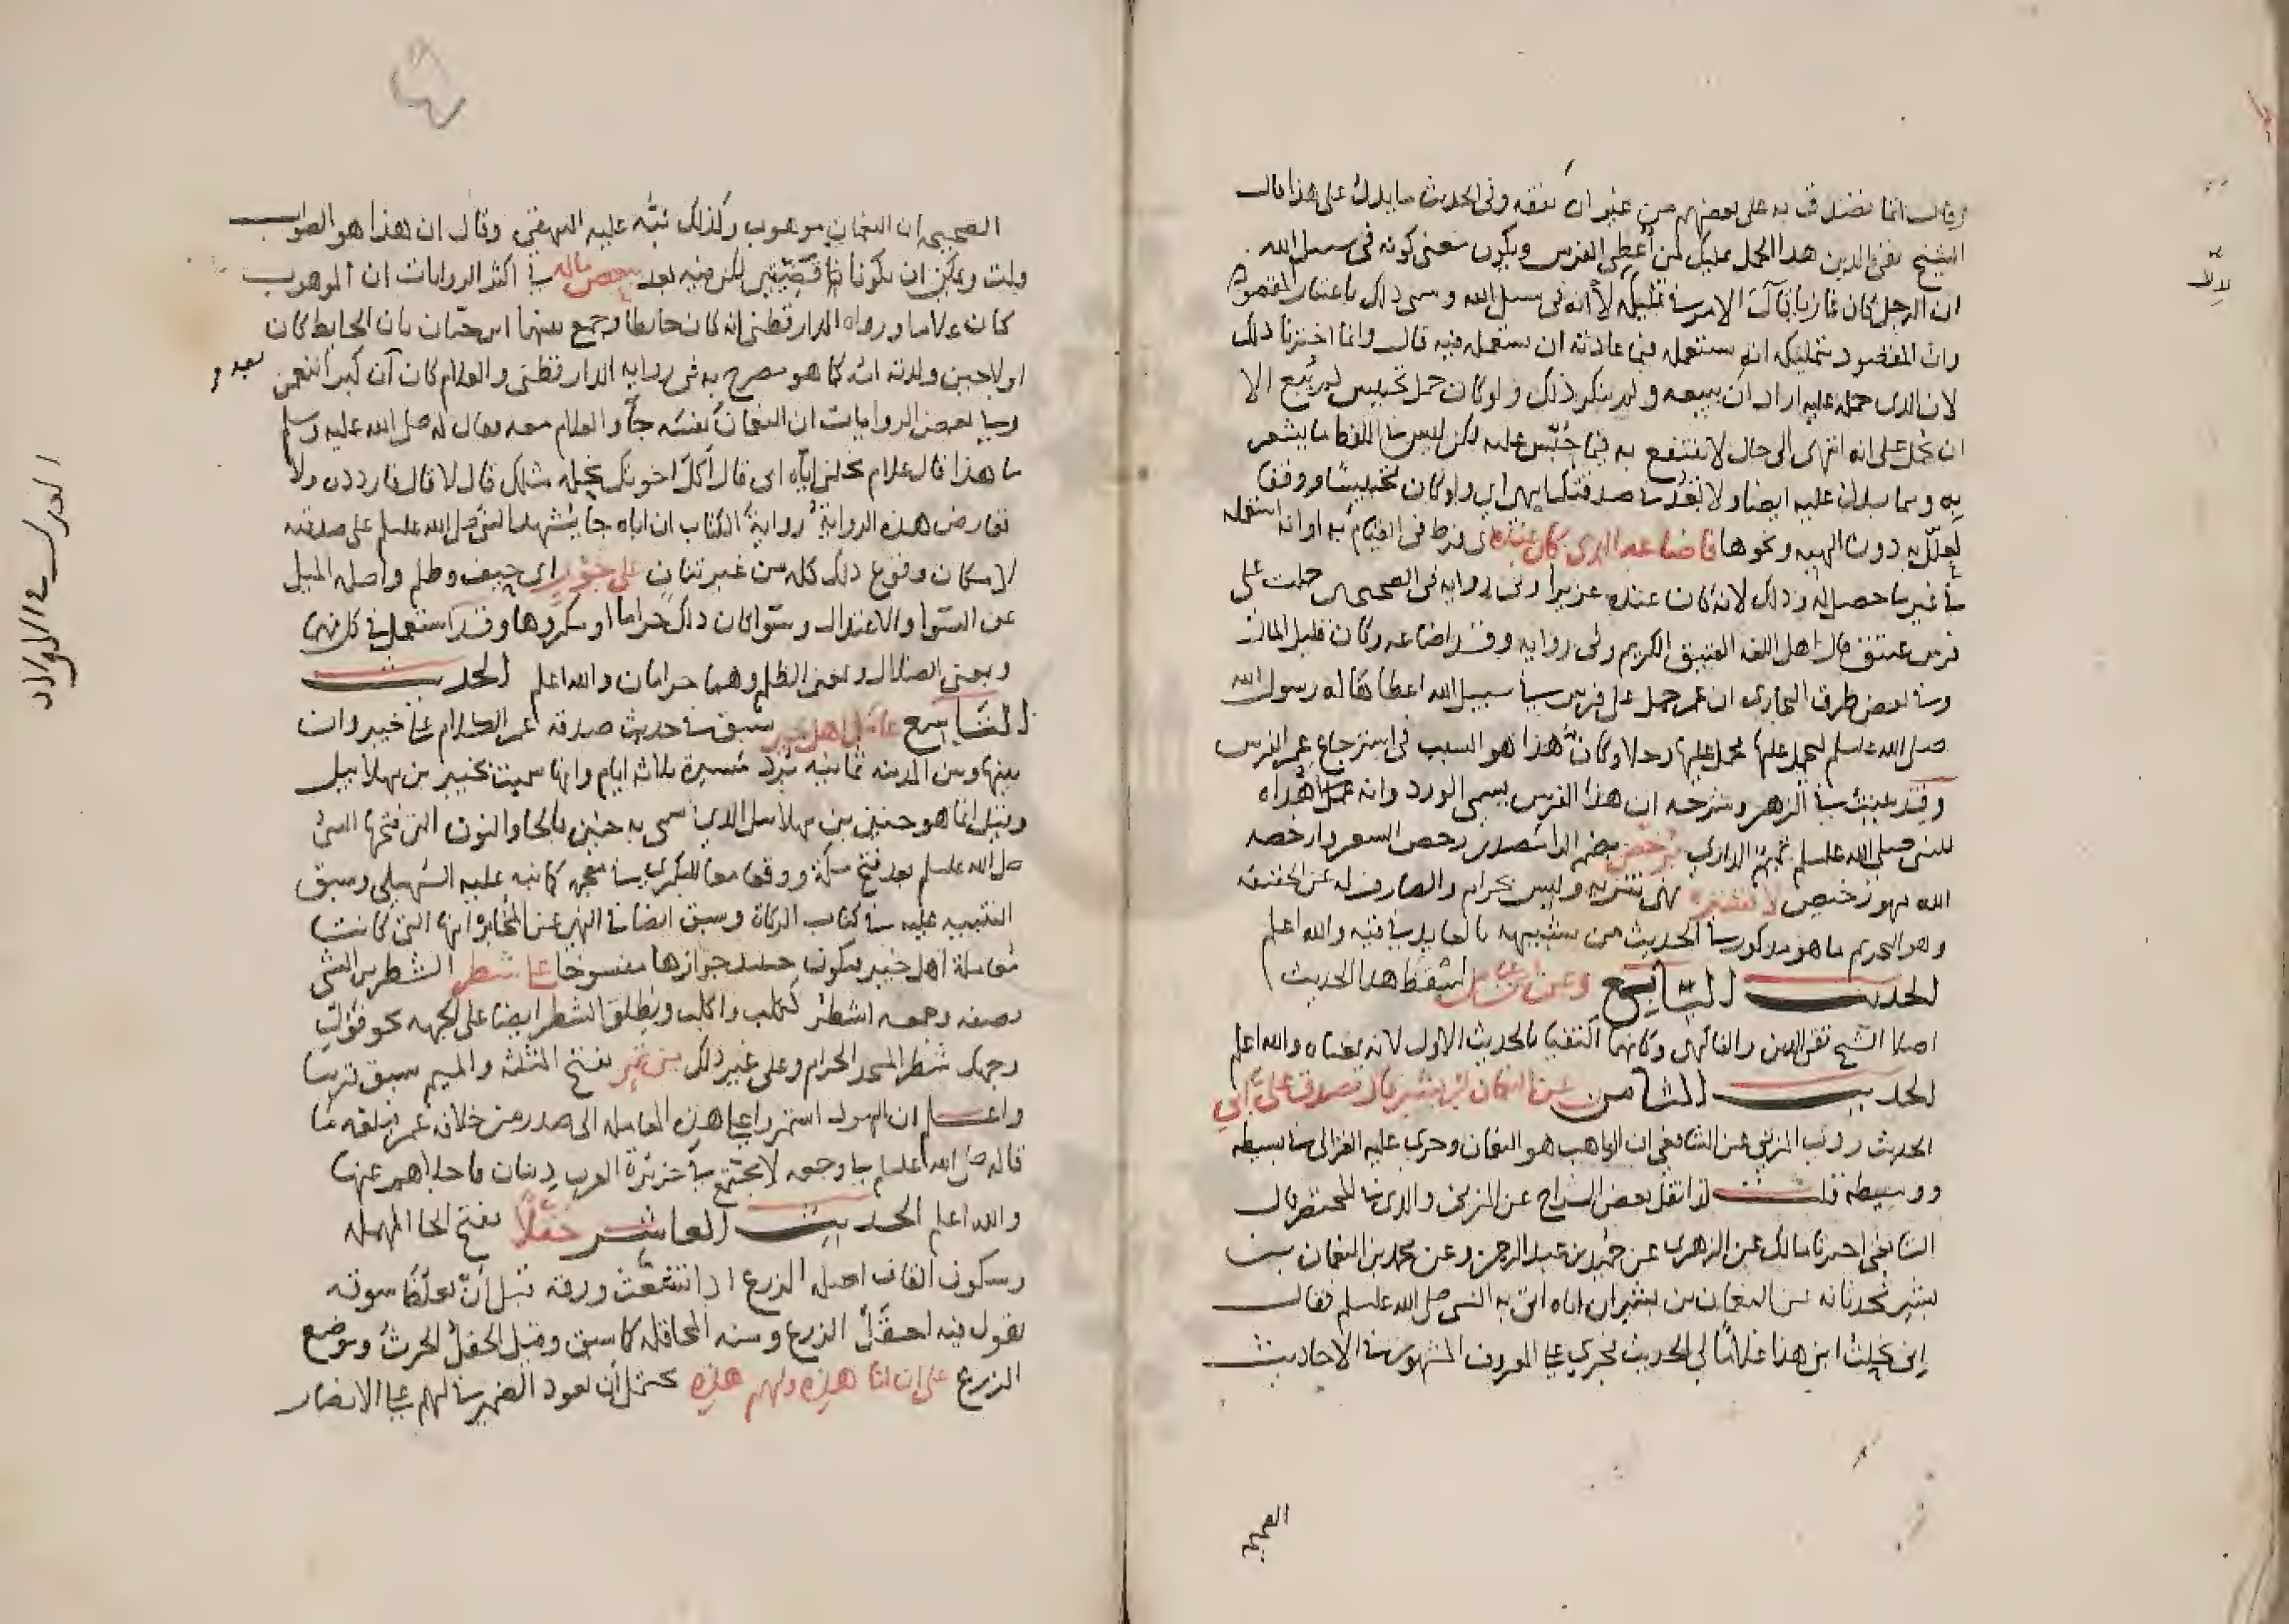 وقال انما تصدق به على بعضهم من غير ان يقفه وفى الحديث ما يدل على هذا قال
الشيخ تقي الدين هذا الحمل تمليك لمن أعطي الفرس ويكون معنى كونه فى سبيل الله
ان الرجل كان غازيا فآل الامر في تمليكه لأنه فى سبيل الله وسمى ذلك باعتبار المقصود
وان المقصود بتمليكه انه يستعمله فيما عادته ان يستعمله فيه قال وانما اخترنا ذلك
لان الذى حمله عليه اراد ان يبيعه ولم ينكر ذلك ولو كان حمل تحبيس لم يبع الا
ان يحمل على انه انتهى الى حال لا ينتفع به فيما حُبّس عليه لكن ليس في اللفظ ما يشعر
به ومما يدل عليه ايضا ولا تعد في صدقتك ابهر اي ولو كان تحبيسا ووقفا
لعلل به دون الهبه ونحوها فاضاعه الذى كان عنده اى فرط فى القيام به او انه استعمله
في غير ما حصل له وذلك لانه كان عنده عزيزا وفى روايه فى الصحيحين حملت على
فرس عتيق قال اهل اللغه العتيق الكريم وفى روايه وقد اضاعه وكان قليل المال
وفي بعض طرق البخارى ان عمر حمل على فرس في سبيل الله اعطاها له رسول الله
صلى الله عليه وسلم ليحمل عليها فحمل عليها رجلا وكان هذا هو السبب فى استرجاع عمر الفرس
وقد بينت في الزهر وشرحه ان هذا الفرس يسمى الورد وانه اهداه
للنبي صلى الله عليه وسلم تميم الدارى برخص بضم الراء مصدر رخص السعر وارخصه
الله فهو رخيص لا تشتره نهى تنزيه وليس بحرام والصارف له عن الحقيقه
وهو التحريم ما هو مذكور في الحديث من تشبيهه بالعايد في قيئه والله اعلم
الحديث السابع وعن ابن عباس اسقط هذا الحديث
ايضا الشيخ تقي الدين والفاكهى وكانهما اكتفيا بالحديث الاول لانه بمعناه والله اعلم
الحديث الثامن عن النعمان بن بشير قال تصدق على ابي
الحديث روى المزني عن الشافعى ان الواهب هو النعمان وجرى عليه الغزالى في بسيطه
ووسيطه قلت كذا نقل بعض الشراح عن المزنى والذى في المختصر قال
الشافعى اخبرنا مالك عن الزهرى عن حميد بن عبد الرحمن وعن محمد بن النعمان بن
بشير يحدثانه عن النعمان بن بشير ان اباه اتى به النبي صلى الله عليه وسلم فقال
انى نحلت ابنى هذا غلاما لي الحديث فجرى على المعروف المشهور في الاحاديث
الصحيحه
الصحيحه ان النعمان موهوب وكذلك نبه عليه البيهقي وقال ان هذا هو الصواب
قلت ويمكن ان يكونا قضيتين لكن فيه بعد بعض ماله في اكثر الروايات ان الموهوب
كان غلاما ورواه الدارقطنى انه كان حايطا وجمع بينهما ابن حبان بان الحايط كان
اولا حين ولدته امه كما هو مصرح به فى روايه الدارقطنى والغلام كان آن كبر النعمن
وفي بعض الروايات ان النعمان بنفسه جآ والغلام معه فقال له صلى الله عليه وسلم
ما هذا قال غلام نحلنى اياه ابى قال أكل اخوتك نحله مثلك قال لا قال فاردده ولا
تعارض هذه الرواية رواية الكتاب ان اباه جا يشهد النبي صلى الله عليه وسلم على صدقته
لامكان وقوع ذلك كله من غير تنافٍ على جور اى حيف وظلم واصله الميل
عن الستوا والاعتدال وسوا كان ذلك حراما او مكروها وقد استعمل في كل منهما
وبمعنى الضلال وبمعنى الظلم وهما حرامان والله اعلم الحديث
التاسع عامل اهل خيبر سبق في حديث صدقة عمر الكلام على خيبر وان
بينها وبين المدينه ثمانيه برد مسيرة ثلاثه ايام وانها سميت بخيبر بن مهلاييل
وقيل انما هو حنين بن مهلاييل الذي سمى به حنين بالحا والنون التى فتحها النبي
صلى الله عليه وسلم بعد فتح مكة ووقعا معا للبكري في معجمه كما نبه عليه السهيلى وسبق
التنبيه عليه في كتاب الزكاة وسبق ايضا في النهي عن المخابرة انها التى كانت
معاملة اهل خيبر فيكون حينئذ جوازها منسوخا على شطر الشطر من الشى
نصفه وجمعه اشطر ككلب واكلب ويطلق الشطر ايضا على الجهه نحو فول
وجهك شطر المسجد الحرام وعلى غير ذلك من ثمر بفتح المثلثه والميم سبق قريبا
واعلم ان اليهود استمروا على هذه المعامله الى صدر من خلافه عمر فبلغه ما
قاله صلى الله عليه وسلم في وجعه لا يجتمع في جزيرة العرب دينان فاجلاهم عنها
والله اعلم الحديث العاشر حقلا بفتح الحا المهمله
وسكون القاف اصله الزرع اذا تشعبت ورقه قبل ان تغلظ سوقه
يقول فيه احقل الزرع ومنه المحاقله كما سبق وقيل الحقل الحرث وموضع
الزرع على ان لنا هذه ولهم هذه يحتمل ان يعود الضمير في لهم على الانصار